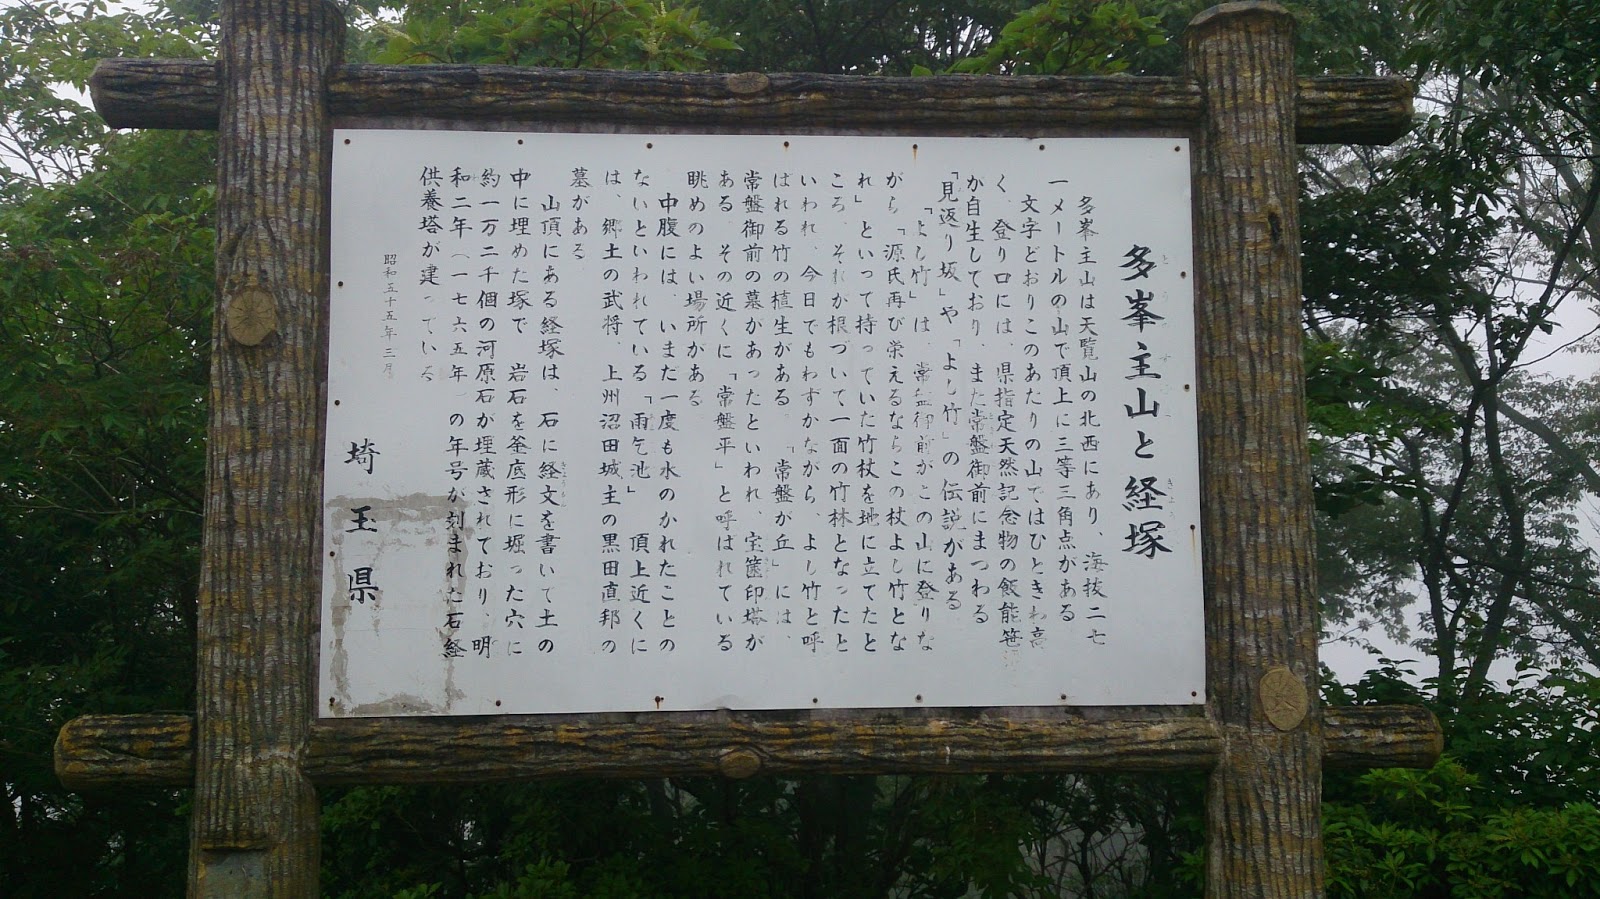 多峯主山と経塚
多峯主山は天覧山の北西にあり、海抜二七
一メートルの山で頂上に三等三角点がある
文字どおりこのあたりの山ではひときわ高
く、登り口には、県指定天然記念物の飯能笹
が自生しており また常盤御前にまつわる
「見返り坂」や「よし竹」の伝説がある
「よし竹」は、常盤御前がこの山に登りな
がら「源氏再び栄えるならこの杖よし竹とな
れ」といって持っていた竹杖を地に立てたと
ころ、それが根づいて一面の竹林となったと
いわれ、今日でもわずかながら、よし竹と呼
ばれる竹の植生がある 「常盤が丘」には、
常盤御前の墓があったといわれ、宝篋印塔が
ある その近くに「常盤平」と呼ばれている
眺めのよい場所がある
中腹には、いまだ一度も水のかれたことの
ないといわれている「雨乞池」 頂上近くに
は、郷土の武将、上州沼田城主の黒田直邦の
墓がある
山頂にある経塚は、石に経文を書いて土の
中に埋めた塚で 岩石を釜底形に堀った穴に
約一万二千個の河原石が埋蔵されており、明
和二年（一七六五年）の年号が刻まれた石経
供養塔が建っている
昭和五十五年三月
埼玉県